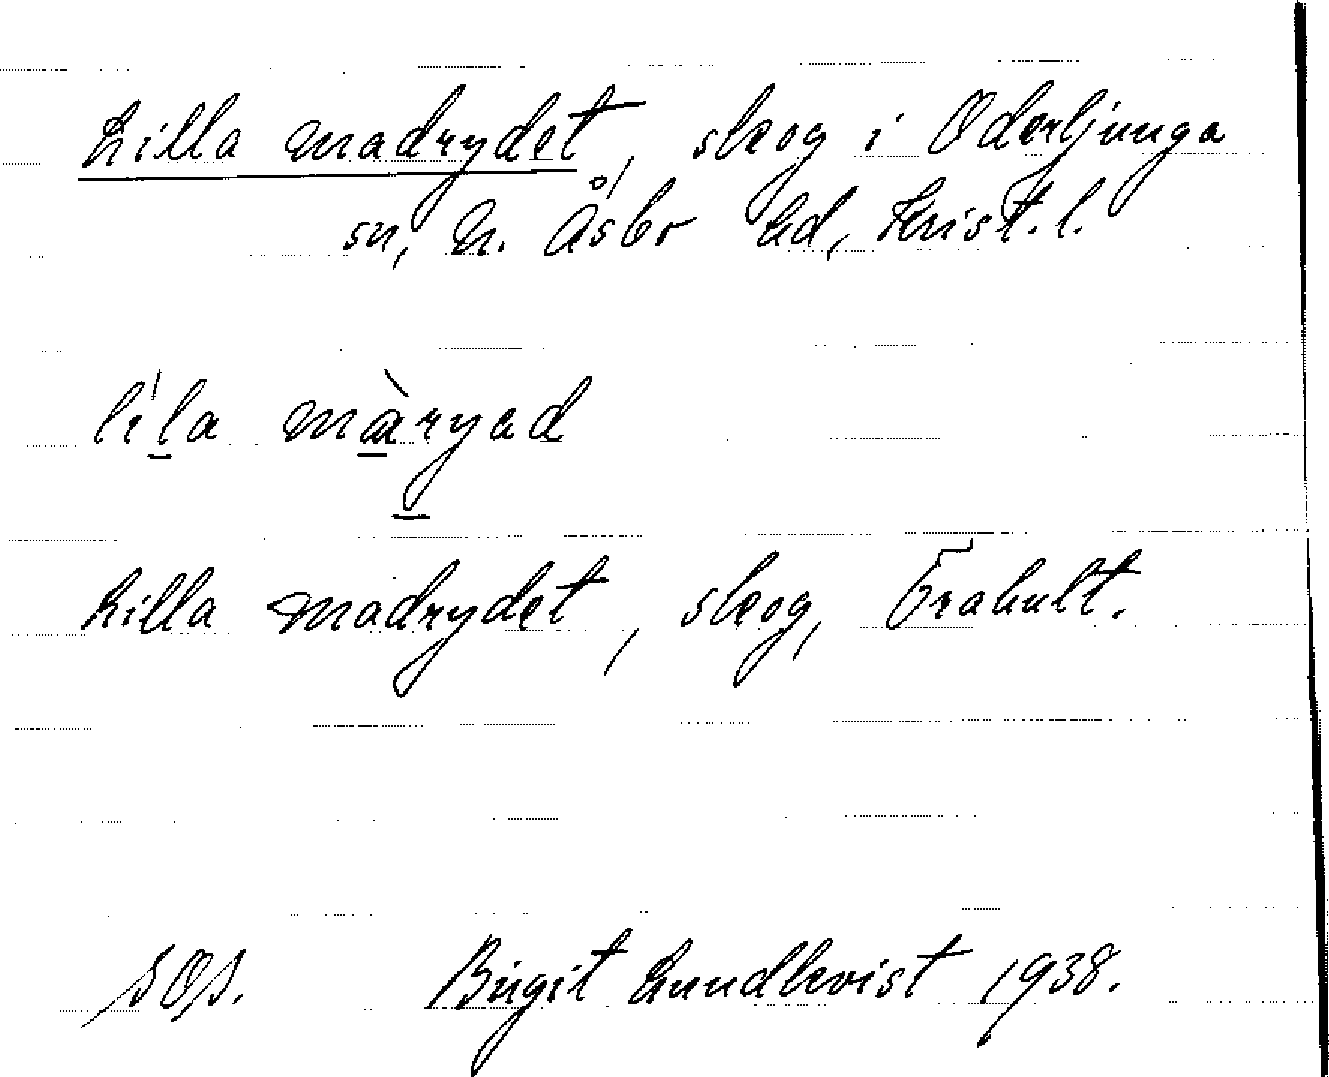 Lilla madrydet, skog i Oderljunga
sn, N. Åsbo hd, Krist. l.
lila maryad
Lilla madrydet, skog, Trahult.
SOS. Birgit Lundkvist 1938.